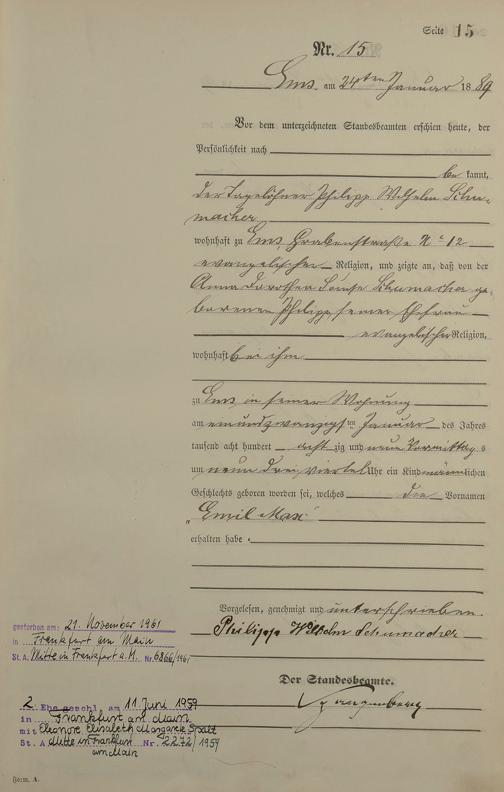 Seite 15
Nr. 15
Ems, am 24ten Januar 1889
Vor dem unterzeichneten Standesbeamten erschien heute, der
Persönlichkeit nach
bekannt,
der Tagelöhner Philipp Wilhelm Schu-
macher
wohnhaft zu Ems, Grabenstraße No 12
evangelischer Religion, und zeigte an, daß von der
Anna Dorothea Louise Schumacher ge-
borenen Philipp, seiner Ehefrau
evangelischer Religion,
wohnhaft bei ihm
zu Ems in seiner Wohnung
am einundzwanzigsten Januar des Jahres
tausend acht hundert achtzig und neun Vormittags
um neun drei viertel Uhr ein Kind männlichen
Geschlechts geboren worden sei, welches den Vornamen
„Emil Max"
erhalten habe.
Vorgelesen, genehmigt und unterschrieben
Philipp Wilhelm Schumacher
Der Standesbeamte.
gestorben am: 21. November 1961
in Frankfurt am Main
St. A. Mitte in Frankfurt a. M. Nr. 6866/1961
2. Ehe geschl. am 11. Juni 1959
in Frankfurt am Main
mit Eleonore Elisabeth Margarete
St. A. Mitte in Frankfurt Nr. 2272/1959
am Main
Form. A.